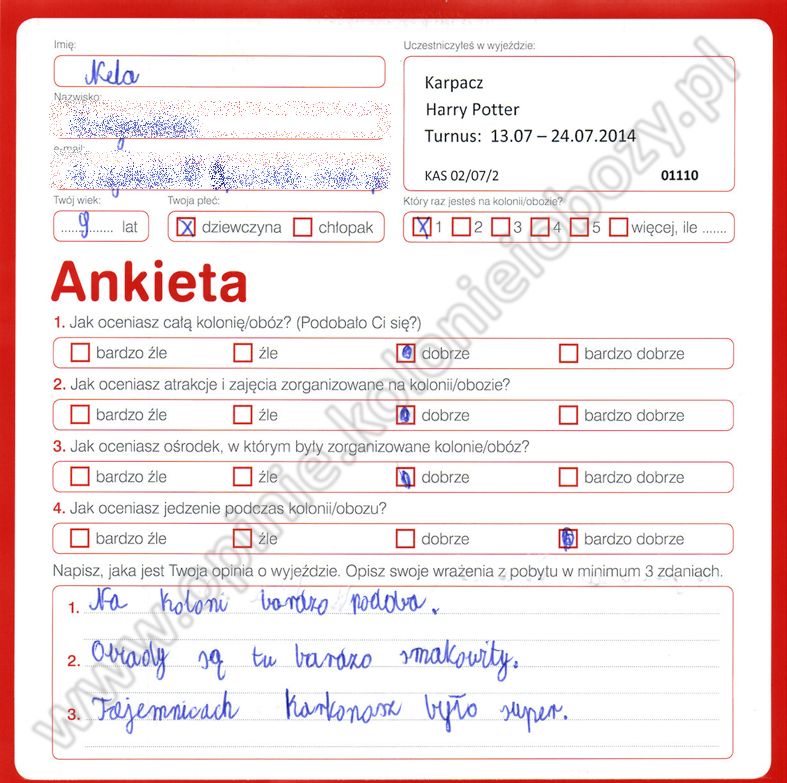 Imię:
Nela
Nazwisko:
e-mail:
Twój wiek:
.....9....... lat
Twoja płeć:
X dziewczyna chłopak
Uczestniczyłeś w wyjeździe:
Karpacz
Harry Potter
Turnus: 13.07 – 24.07.2014
KAS 02/07/2 01110
Który raz jesteś na kolonii/obozie?
X 1 2 3 4 5 więcej, ile .......
Ankieta
1. Jak oceniasz całą kolonię/obóz? (Podobało Ci się?)
bardzo źle źle dobrze bardzo dobrze
2. Jak oceniasz atrakcje i zajęcia zorganizowane na kolonii/obozie?
bardzo źle źle dobrze bardzo dobrze
3. Jak oceniasz ośrodek, w którym były zorganizowane kolonie/obóz?
bardzo źle źle dobrze bardzo dobrze
4. Jak oceniasz jedzenie podczas kolonii/obozu?
bardzo źle źle dobrze bardzo dobrze
Napisz, jaka jest Twoja opinia o wyjeździe. Opisz swoje wrażenia z pobytu w minimum 3 zdaniach.
1. Na koloni bardzo podoba.
2. Obiady są tu bardzo smakowity.
3. Tajemnicach Karkonosz było super.
www.opinie.kolonieiobozy.pl